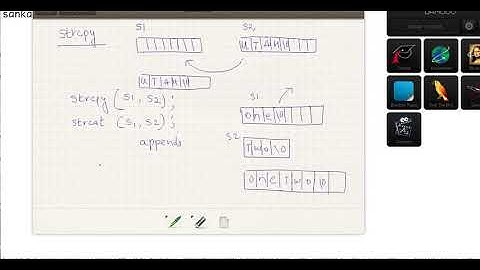 sanka
strcpy
S1
S2
U T A H \0
U T A H \0
strcpy (S1, S2);
strcat (S1, S2);
appends
S1
o n e \0
S2
T w o \0
o n e T w o \0